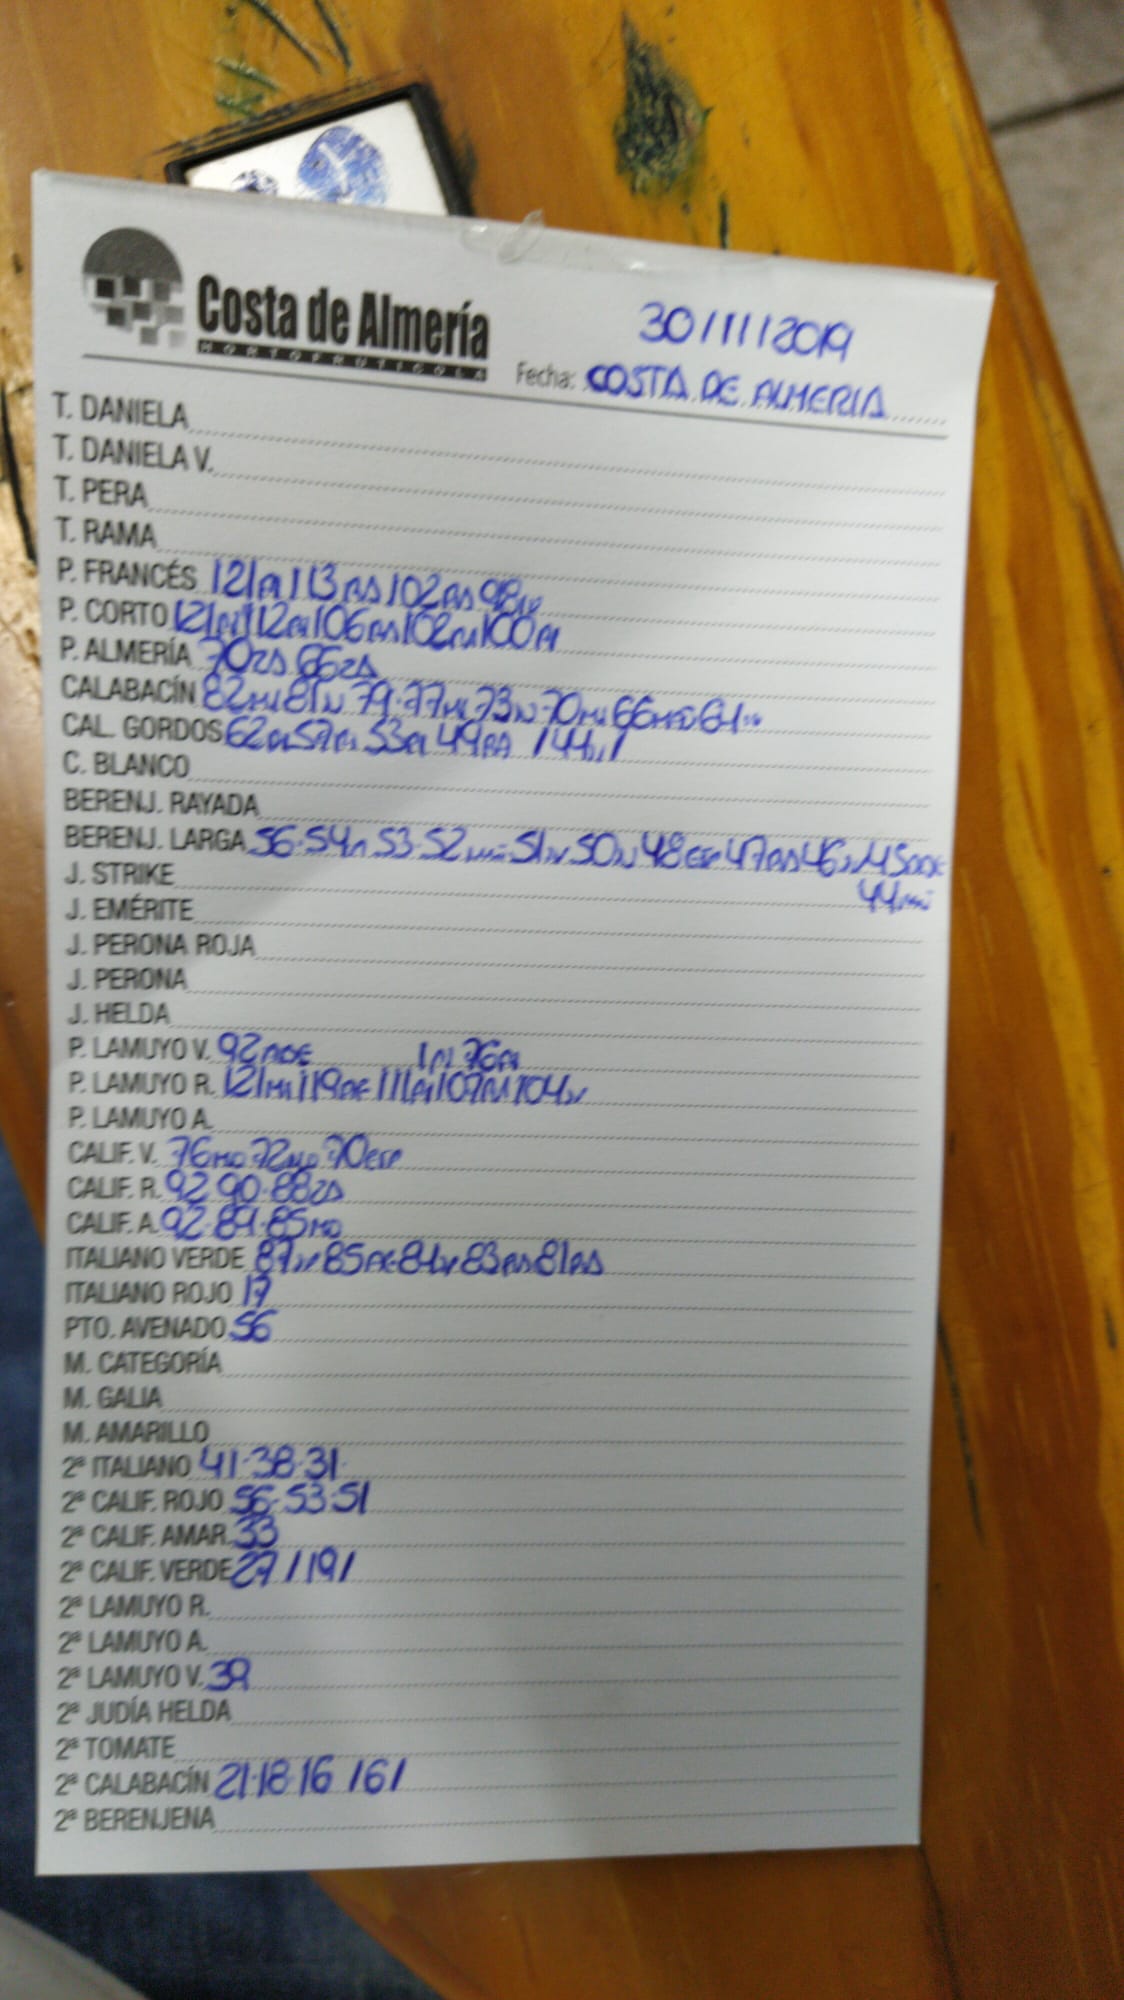 Costa de Almería
HORTOFRUTICOLA
30/11/2019
Fecha: COSTA DE ALMERIA
T. DANIELA
T. DANIELA V.
T. PERA
T. RAMA
P. FRANCÉS 121 113 102 98
P. CORTO 121 112 106 102 100
P. ALMERÍA 70 66
CALABACÍN 82 81 79·77 73 70 66 64
CAL. GORDOS 62 57 53 49 /44 /
C. BLANCO
BERENJ. RAYADA
BERENJ. LARGA 56·54 53·52 51 50 48 47 46 45
44
J. STRIKE
J. EMÉRITE
J. PERONA ROJA
J. PERONA
J. HELDA
P. LAMUYO V. 92 76
P. LAMUYO R. 121 119 111 107 104
P. LAMUYO A.
CALIF. V. 76 72 70
CALIF. R. 92 90·88
CALIF. A. 92·89·85
ITALIANO VERDE 87 85 84 83 81
ITALIANO ROJO 17
PTO. AVENADO 56
M. CATEGORÍA
M. GALIA
M. AMARILLO
2ª ITALIANO 41·38·31
2ª CALIF. ROJO 56·53·51
2ª CALIF. AMAR. 33
2ª CALIF. VERDE 27 /19/
2ª LAMUYO R.
2ª LAMUYO A.
2ª LAMUYO V. 39
2ª JUDÍA HELDA
2ª TOMATE
2ª CALABACÍN 21·18·16 /6/
2ª BERENJENA